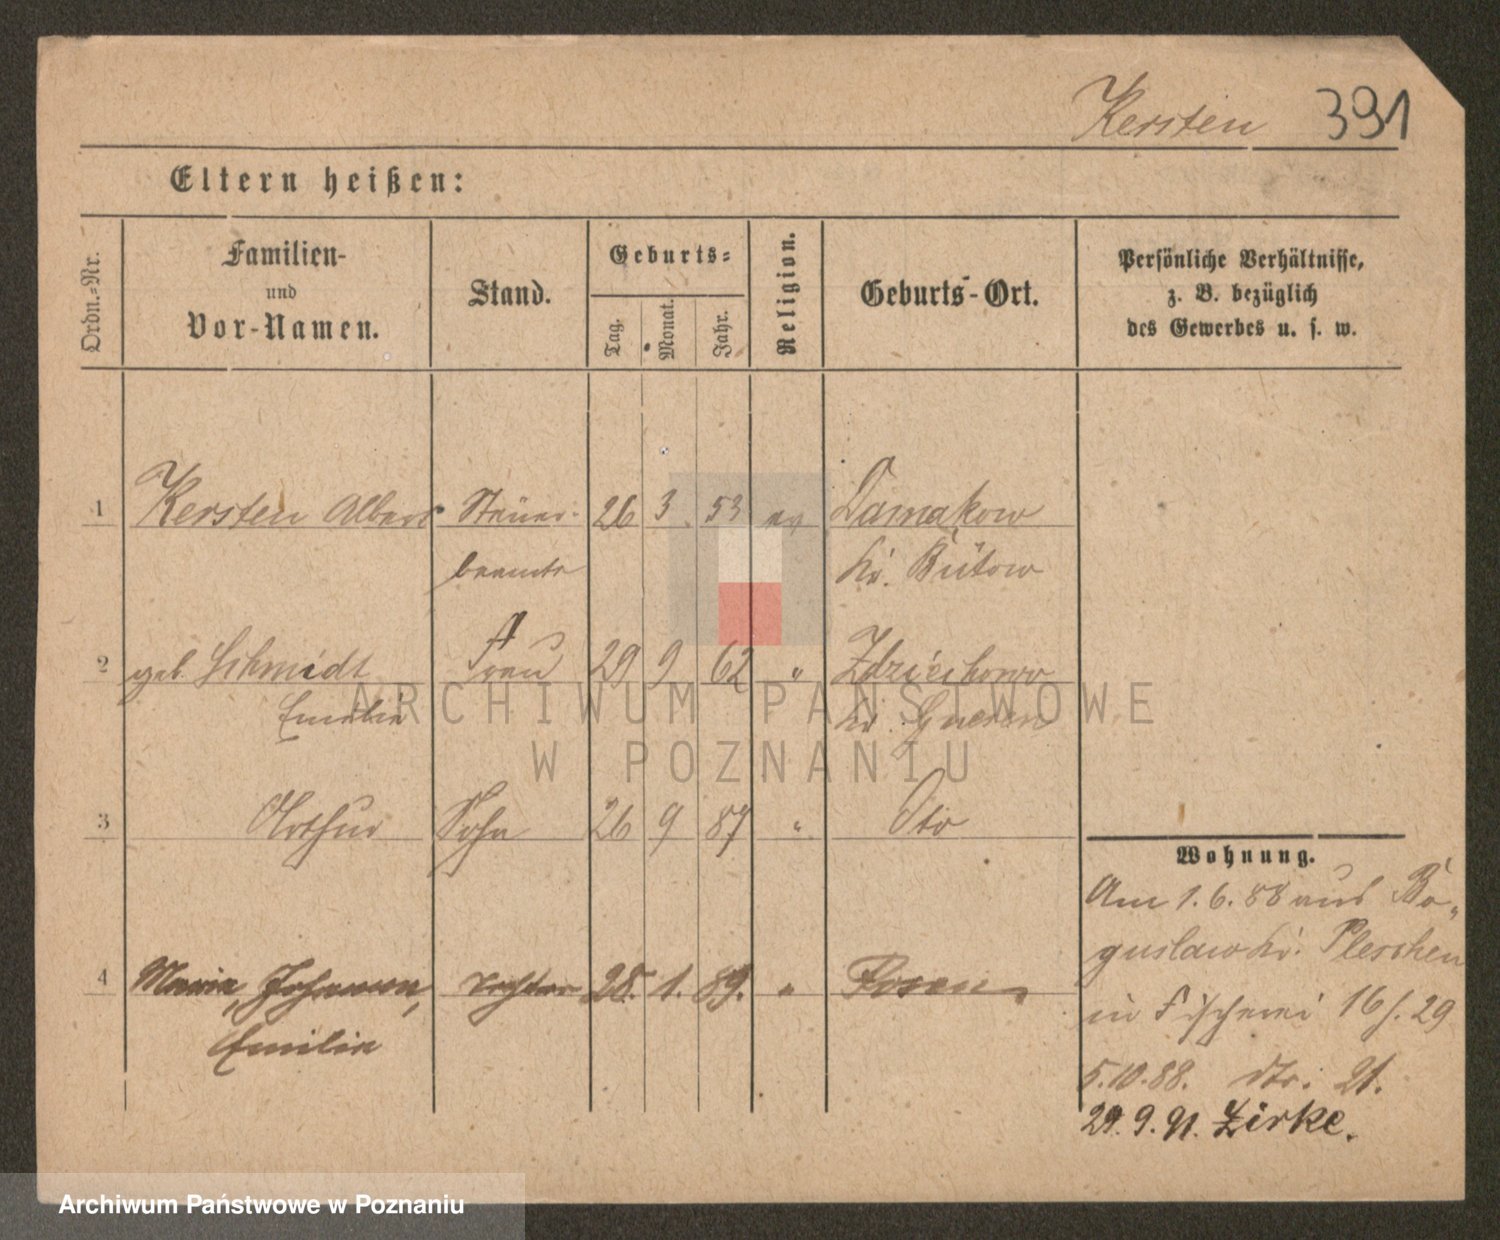 Kersten 391
Eltern heißen:
Ordn.-Nr.
Familien-
und
Vor-Namen.
Stand.
Geburts-
Tag.
Monat.
Jahr.
Religion.
Geburts-Ort.
Persönliche Verhältnisse,
z. B. bezüglich
des Gewerbes u. s. w.
1 Kersten Albert Steuer- 26 3. 53 ev Damakow
beamte Kr. Bütow
2 geb. Schmidt Frau 29 9 62 " Zdziechowo
Emilie Kr. Gnesen
3 Arthur Sohn 26 9 87 "
4 Maria, Johanna, Tochter 28. 1. 89. " Posen
Emilie
Wohnung.
Am 1.6.88 aus Bo-
guslaw Kr. Pleschen
in Fischerei 16/. 29
5.10.88. dto. 21.
29.9.91. Zirke.
ARCHIWUM PAŃSTWOWE
W POZNANIU
Archiwum Państwowe w Poznaniu